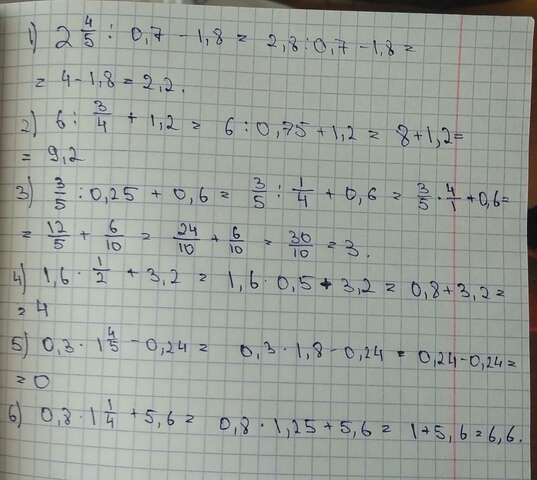 1) 2 4/5 : 0,7 - 1,8 = 2,8 : 0,7 - 1,8 =
= 4 - 1,8 = 2,2.
2) 6 : 3/4 + 1,2 = 6 : 0,75 + 1,2 = 8 + 1,2 =
= 9,2
3) 3/5 : 0,25 + 0,6 = 3/5 : 1/4 + 0,6 = 3/5 · 4/1 + 0,6 =
= 12/5 + 6/10 = 24/10 + 6/10 = 30/10 = 3.
4) 1,6 · 1/2 + 3,2 = 1,6 · 0,5 + 3,2 = 0,8 + 3,2 =
= 4
5) 0,3 · 1 4/5 - 0,24 = 0,3 · 1,8 - 0,24 = 0,24 - 0,24 =
= 0
6) 0,8 · 1 1/4 + 5,6 = 0,8 · 1,25 + 5,6 = 1 + 5,6 = 6,6.